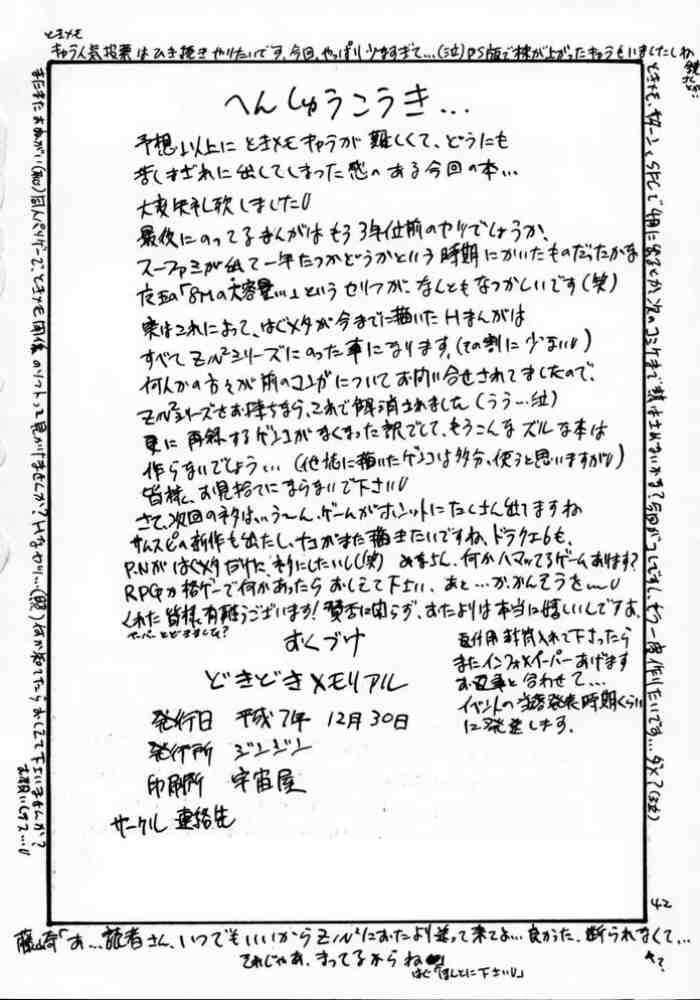 ときメモ
キャラ人気投票はひき続きやりたいです。今回、やっぱり少なすぎて…(泣)PS版で株が上がったキャラもいましたしね
へんしゅうこうき…
予想以上にときメモキャラが難しくて、どうにも
苦しまぎれに出してしまった感のある今回の本…
大変失礼致しました
最後にのってるまんがはもう3年位前のヤツでしょうか、
スーファミが出て一年たつかどうかという時期にかいたものだったかな
「8Mの大容量…」というセリフが、なんともなつかしいです(笑)
実はこれによって、はじメタが今までに描いたHまんがは
すべてZN²シリーズにのった事になります。(その割に少ない)
何人かの方々が前のコトガについてお問い合せされてましたので、
ZN²シリーズをお持ちなら、これで解消されました(うう…泣)
更に再録するゲンコがなくなった訳でして、もうこんなズルな本は
作らないでしょう…(他誌に描いたゲンコは多分、使うと思いますが)
皆様、お見捨てにならないで下さい
さて、次回のネタは…う〜ん、ゲームがホントにたくさん出てますね
サムスピの新作も出たし、ナコがまた描きたいですね、ドラクエ6も、
P.Nがはぐメタだけに、ネタにしたいし(笑) みなさん、何かハマッてるゲームあります?
RPGか格ゲーで何かあったらおしえて下さい、あと…か、かんそうを
くれた皆様、有難うございます!賛否に関らず、おたよりは本当に嬉しいんですよ、
ペーパーとどきました?
おくづけ
どきどきメモリアル
発行日 平成7年 12月30日
発行所 ジンジン
印刷所 宇宙屋
サークル 連絡先
返信用封筒入れて下さったら
またインフォメイパーあげます
お返事と合わせて…
イベントの当落発表時期くらい
に発送します。
ときメモ、サターンとSFCで4月に出るとか、次のコミケまで熱は冷めないかな?今回がコレですし、もう一度作りたいです…ダメ?(泣)
またまたおねがい(殴)同人ベリゲーで、ときメモ関係のソフトって見かけませんか?Hなヤツ…(照)何か知ってたらおしえて下さいませんか?
お願いします…
42
藤崎「あ…読者さん、いつでもいいからZN²におたより送って来てよ…良かった、断られなくて…
それじゃあ、まってるからね
はぐ「ほんとに下さい」